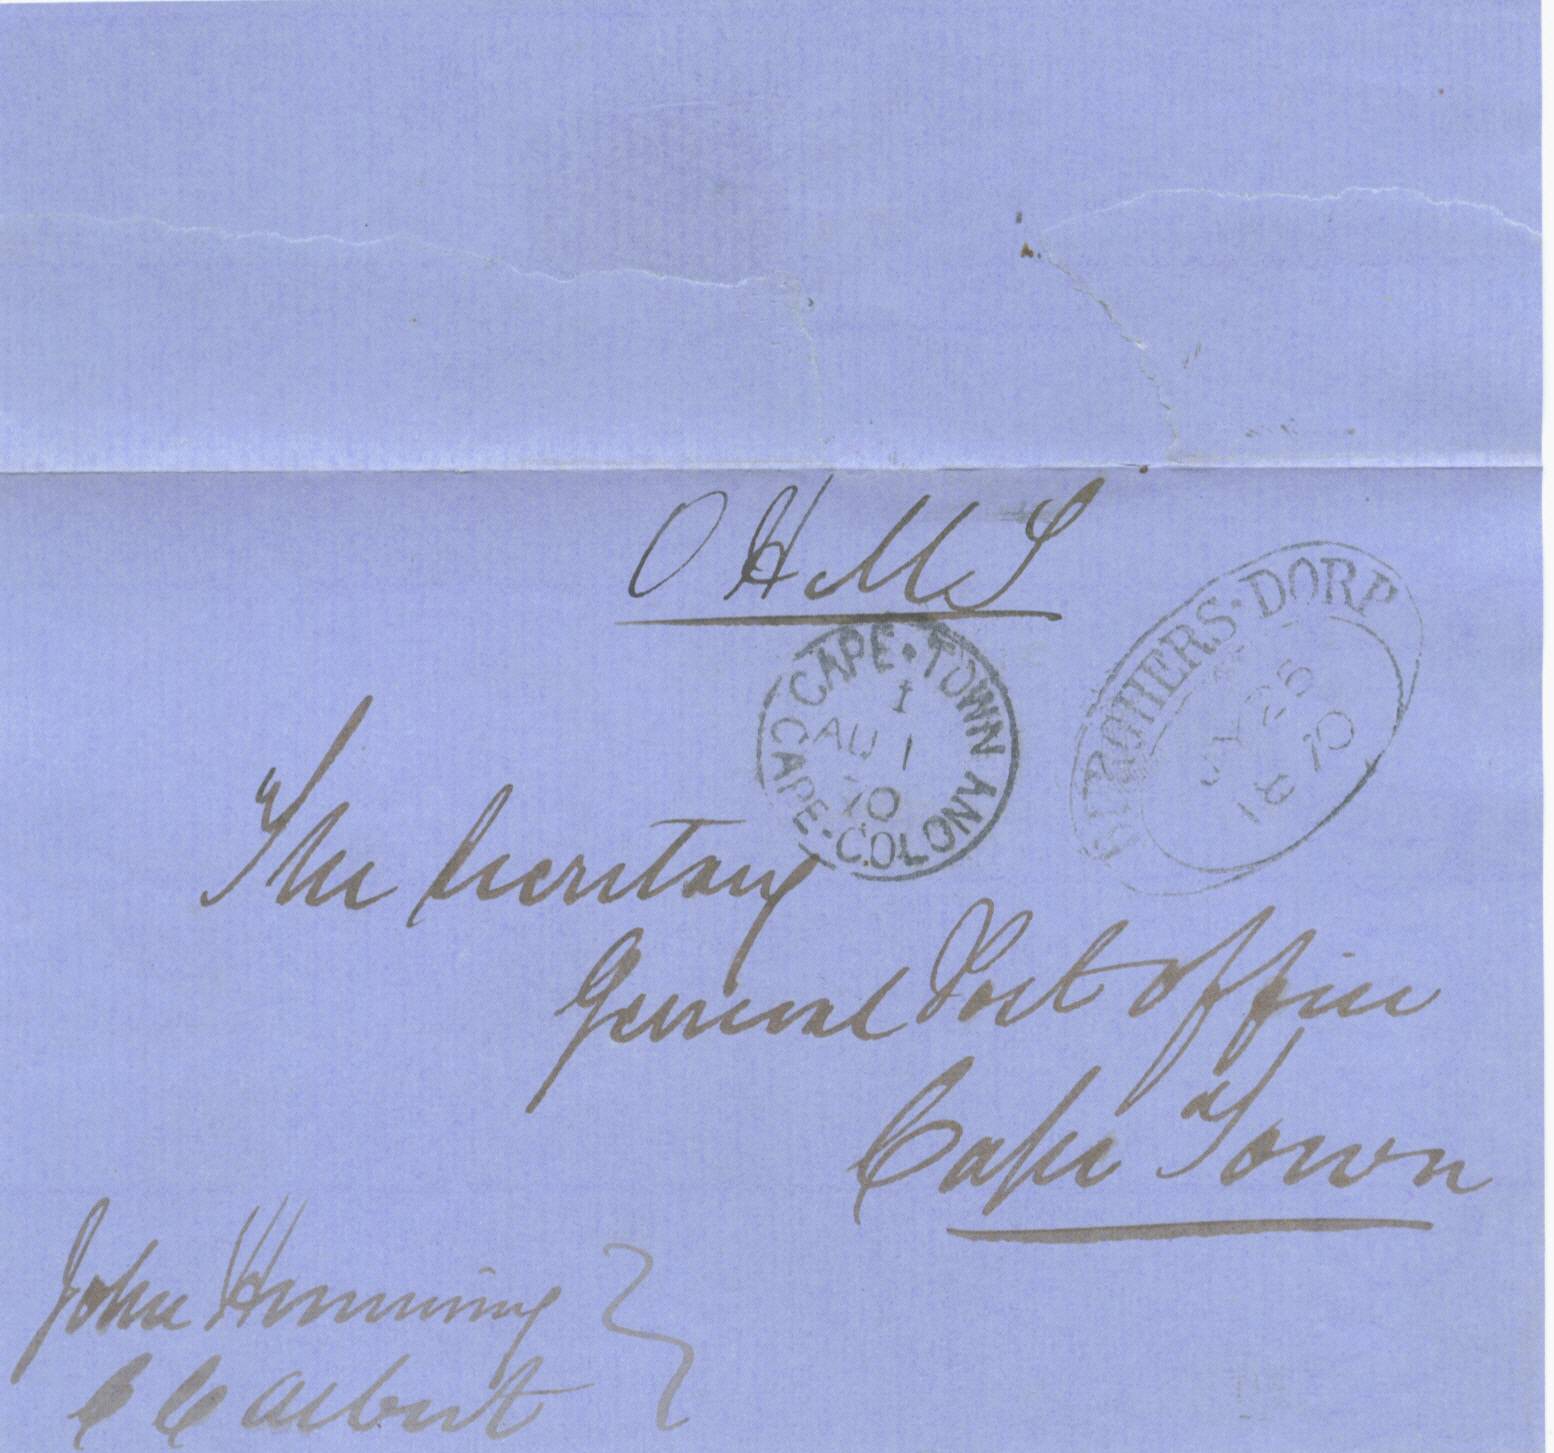 O H M S
CAPE·TOWN
CAPE·COLONY
1
AU 1
70
BURGHERS·DORP
JY 26
18 70
The Secretary
General Post Office
Cape Town
John Hemming
C C Albert